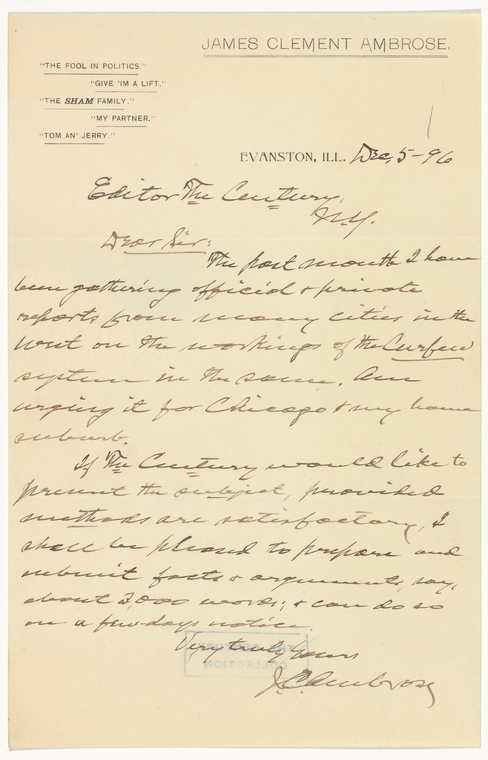 JAMES CLEMENT AMBROSE.
"THE FOOL IN POLITICS."
"GIVE 'IM A LIFT."
"THE SHAM FAMILY."
"MY PARTNER."
"TOM AN' JERRY."
EVANSTON, ILL. Dec, 5-96
Editor The Century,
N.Y.
Dear Sir:
The past month I have
been gathering official & private
reports from many cities in the
West on the workings of the Curfew
system in the same. Am
urging it for Chicago & my home
suburb.
If The Century would like to
present the subject, provided
methods are satisfactory, I
shall be pleased to prepare and
submit facts & arguments, say,
about 2,000 words; & can do so
on a few days notice.
Very truly yours
J.C. Ambrose
COLLECTION